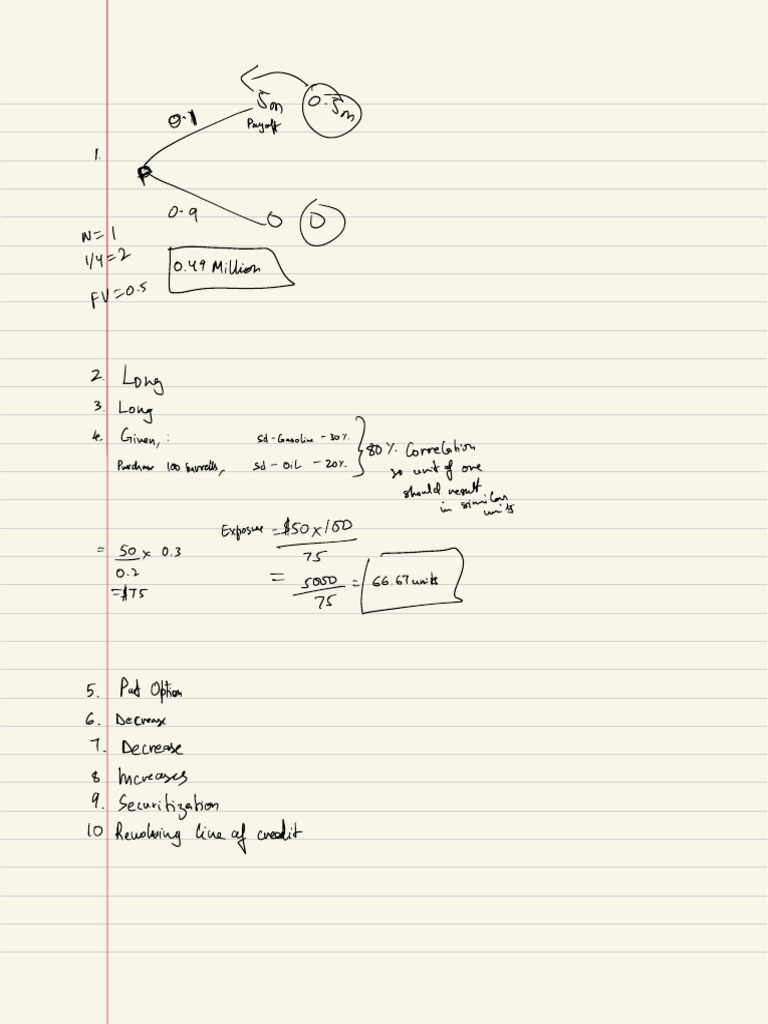 0.1
5m
0.5m
Payoff
1.
P
0.9
0
0
N=1
1/Y=2
0.49 Million
FV=0.5
2. Long
3. Long
4. Given, : sd-Gasoline - 30%
Purchase 100 barrels, sd - Oil - 20%
80% Correlation
so unit of one
should result
in similar
units
= 50/0.2 x 0.3
= $75
Exposure = $50 x 100 / 75
= 5000/75 = 66.67 units
5. Put Option
6. Decrease
7. Decrease
8 Increases
9. Securitization
10 Revolving line of credit